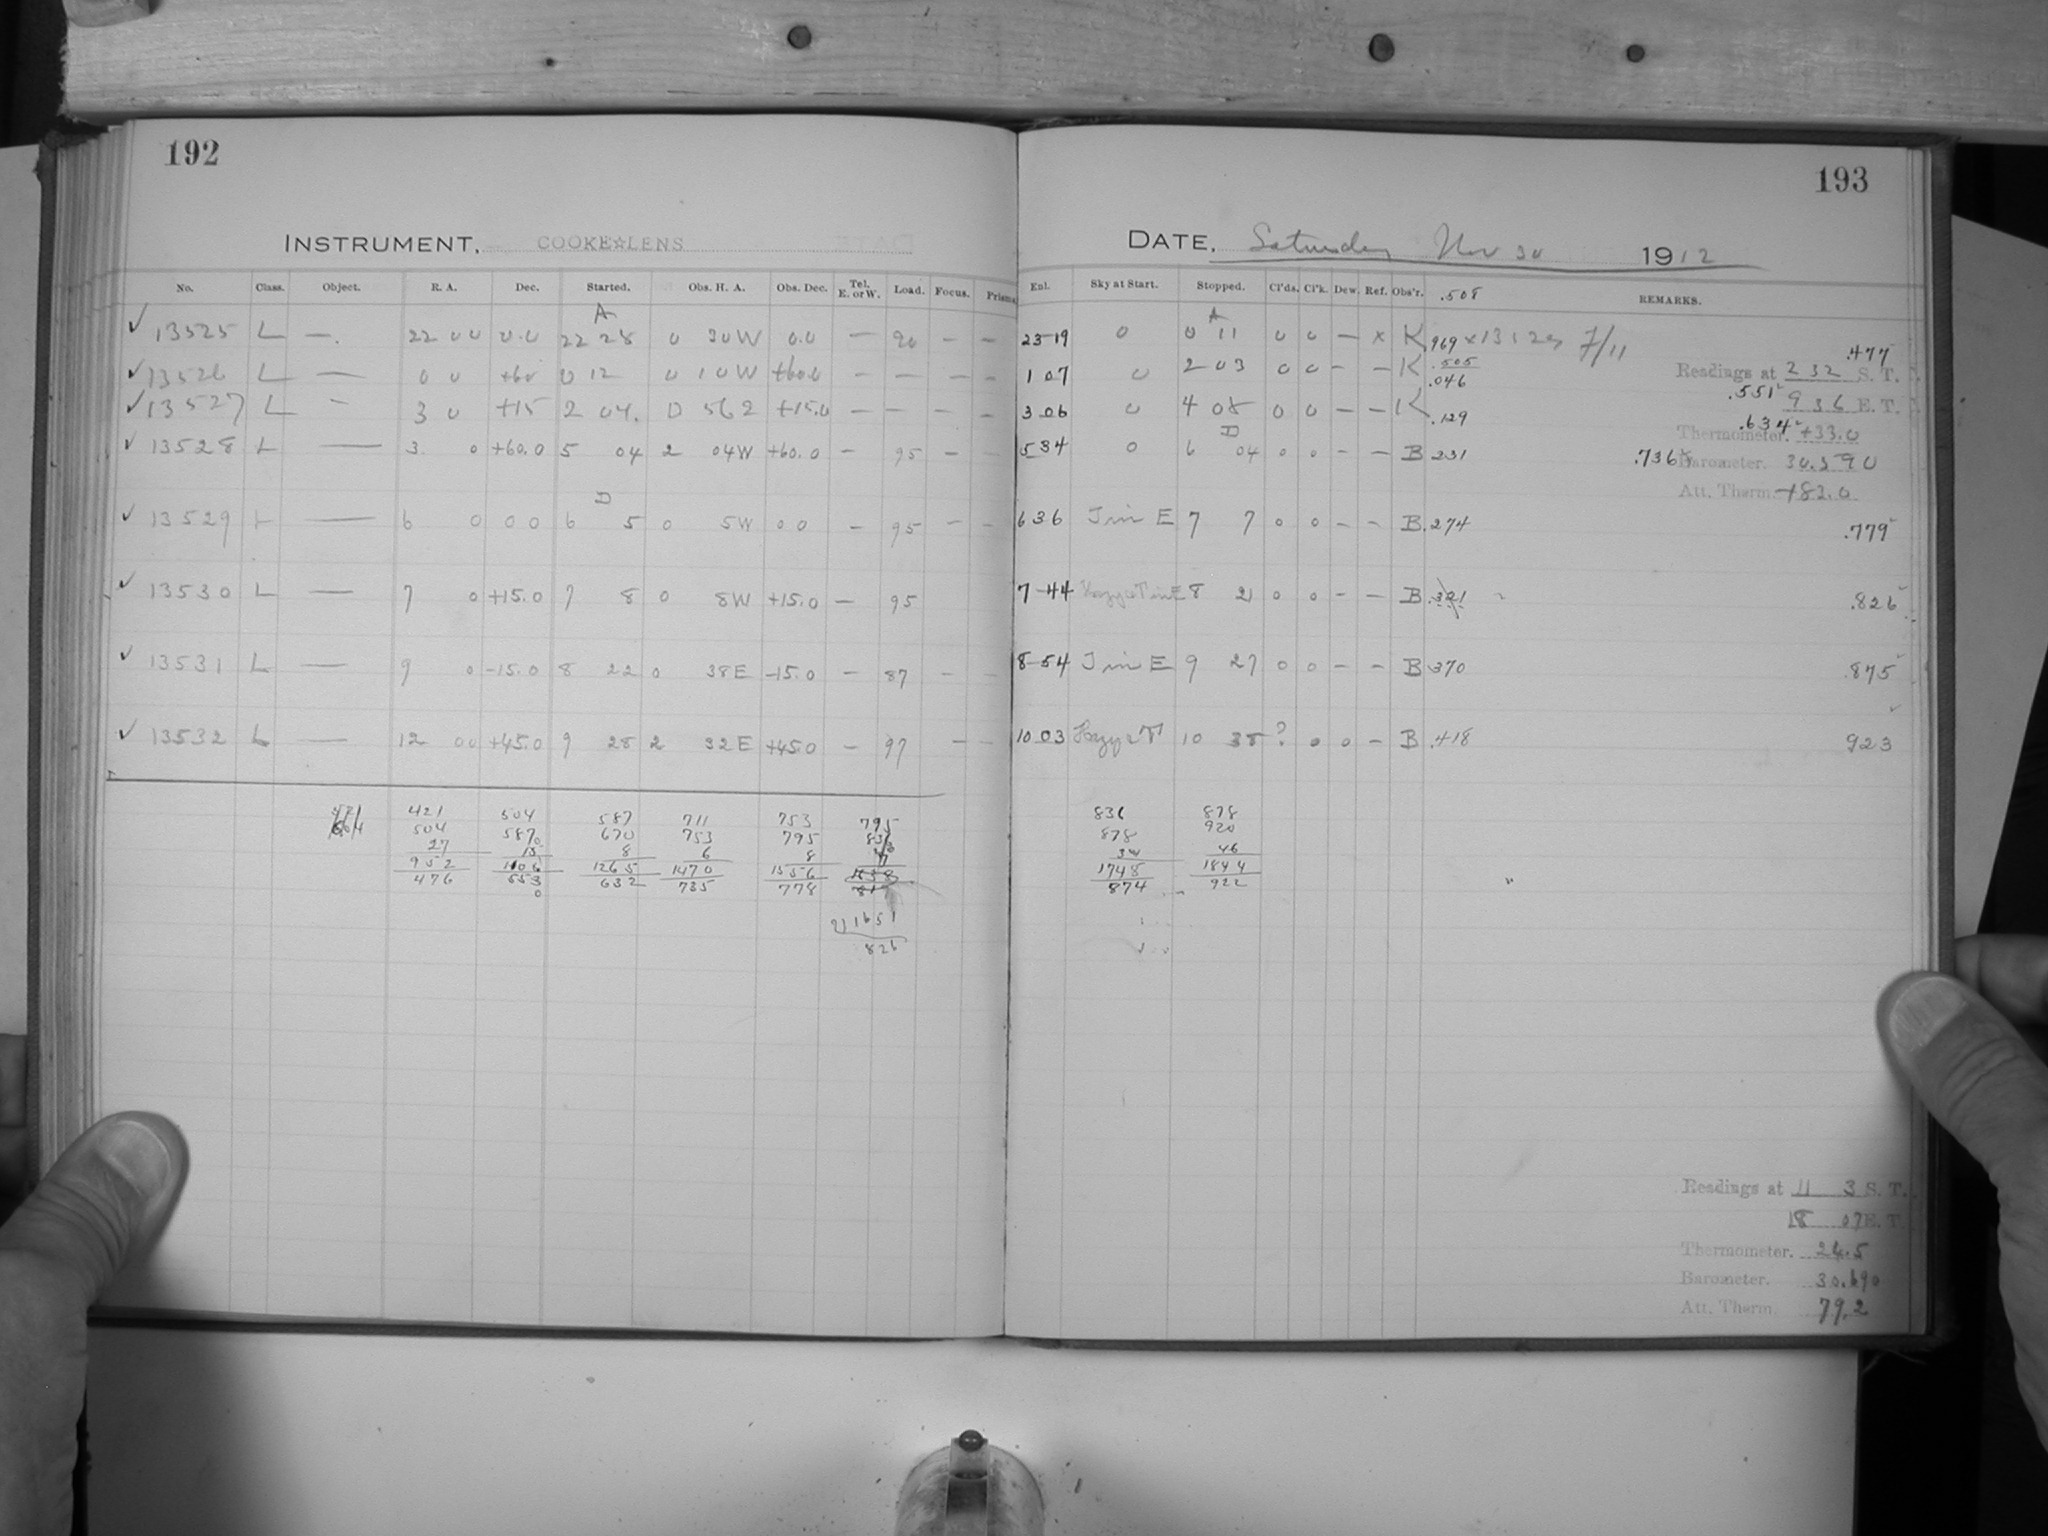 192
INSTRUMENT. COOKE☆LENS
No. Class. Object. R. A. Dec. Started. Obs. H. A. Obs. Dec. Tel. E. or W. Load. Focus. Prisms
A
✓ 13525 L —. 22 00 0.0 22 28 0 30W 0.0 — 90 — —
✓ 13526 L — 0 0 +60 0 12 0 10W +60.0 — — — —
✓ 13527 L — 3 0 +15 2 04. D 56 2 +15.0 — — — —
✓ 13528 L — 3 0 +60.0 5 04 2 04W +60.0 — 95 — —
D
✓ 13529 L — 6 0 0 0 6 5 0 5W 0 0 — 95 — —
✓ 13530 L — 7 0 +15.0 7 8 0 8W +15.0 — 95
✓ 13531 L — 9 0 -15.0 8 22 0 38E -15.0 — 87 — —
✓ 13532 L — 12 00 +45.0 9 28 2 32E +45.0 — 97 — —
421 504 587 711 753 795
504 587 670 753 795 836
27 15 8 6 8
952 1106 1265 1470 1556
476 553 632 735 778
0
2)1651
826
193
DATE. Saturday Nov 30 1912
Enl. Sky at Start. Stopped. Cl'ds. Cl'k. Dew. Ref. Obs'r. .508 REMARKS.
A
23-19 0 0 11 0 0 — x K .969 x 13129 7/11
.477
1 07 0 2 03 0 0 — — K .505
.046
Readings at 2 32 S. T.
.551
9 36 E. T.
3 06 0 4 08 0 0 — — K .129
.634
Thermometer. +33.0
D
5 34 0 6 04 0 0 — — B 231
.736 Barometer. 30.590
Att. Therm. +82.0
6 36 Tin E 7 7 0 0 — — B .274 .779
7-44 Hazy & Tin E 8 21 0 0 — — B .321 .826
8-54 Tin E 9 27 0 0 — — B .370 .875
10 03 Hazy & T 10 38 ? 0 0 — B .418 923
836 878
878 920
34 46
1748 1844
874 922
Readings at 11 3 S. T.
18 07 E. T.
Thermometer. 24.5
Barometer. 30.690
Att. Therm. 79.2